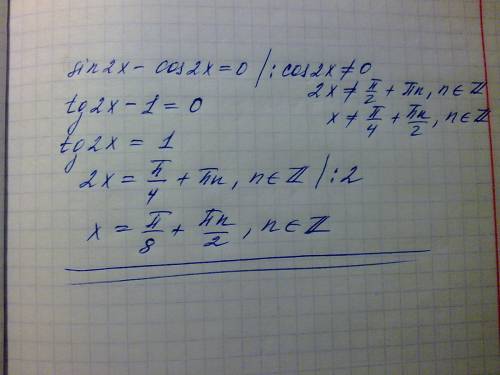 sin2x - cos2x = 0 / : cos2x ≠ 0
2x ≠ π/2 + πn, n ∈ ℤ
tg2x - 1 = 0
x ≠ π/4 + πn/2, n ∈ ℤ
tg2x = 1
2x = π/4 + πn, n ∈ ℤ / : 2
x = π/8 + πn/2, n ∈ ℤ